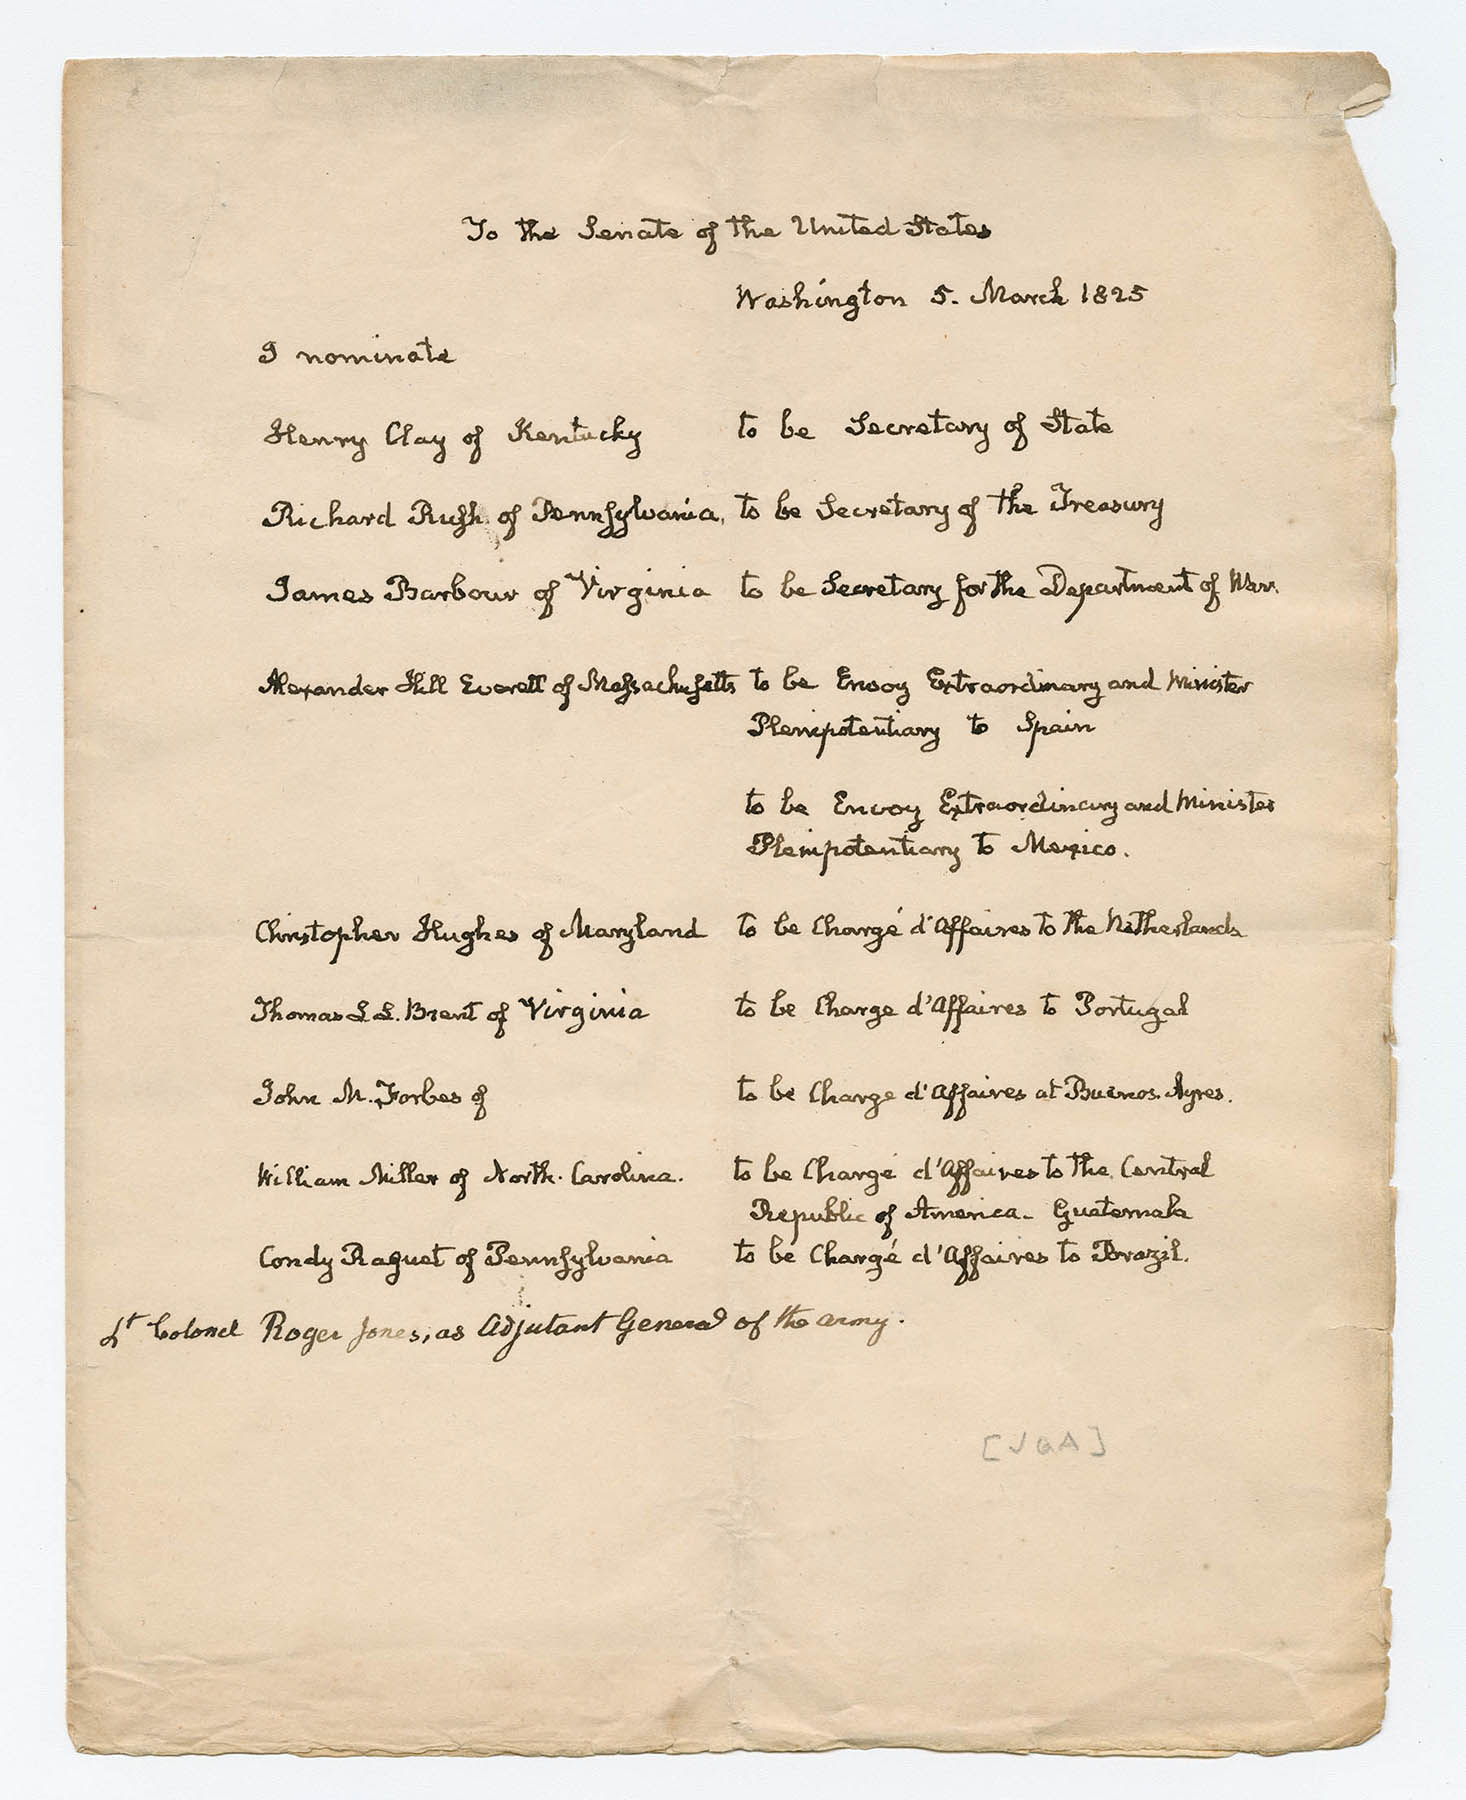 To the Senate of the United States
Washington 5. March 1825
I nominate
Henry Clay of Kentucky to be Secretary of State
Richard Rush of Pennsylvania, to be Secretary of the Treasury
James Barbour of Virginia to be Secretary for the Department of War.
Alexander Hill Everett of Massachusetts to be Envoy Extraordinary and Minister
Plenipotentiary to Spain
to be Envoy Extraordinary and Minister
Plenipotentiary to Mexico.
Christopher Hughes of Maryland to be Chargé d'Affaires to the Netherlands
Thomas L L. Brent of Virginia to be Charge d'Affaires to Portugal
John M. Forbes of to be Charge d'Affaires at Buenos Ayres.
William Miller of North. Carolina. to be Chargé d'Affaires to the Central
Republic of America - Guatemala
Condy Raguet of Pennsylvania to be Chargé d'Affaires to Brazil.
Lt Colonel Roger Jones, as Adjutant General of the army.
[JQA]